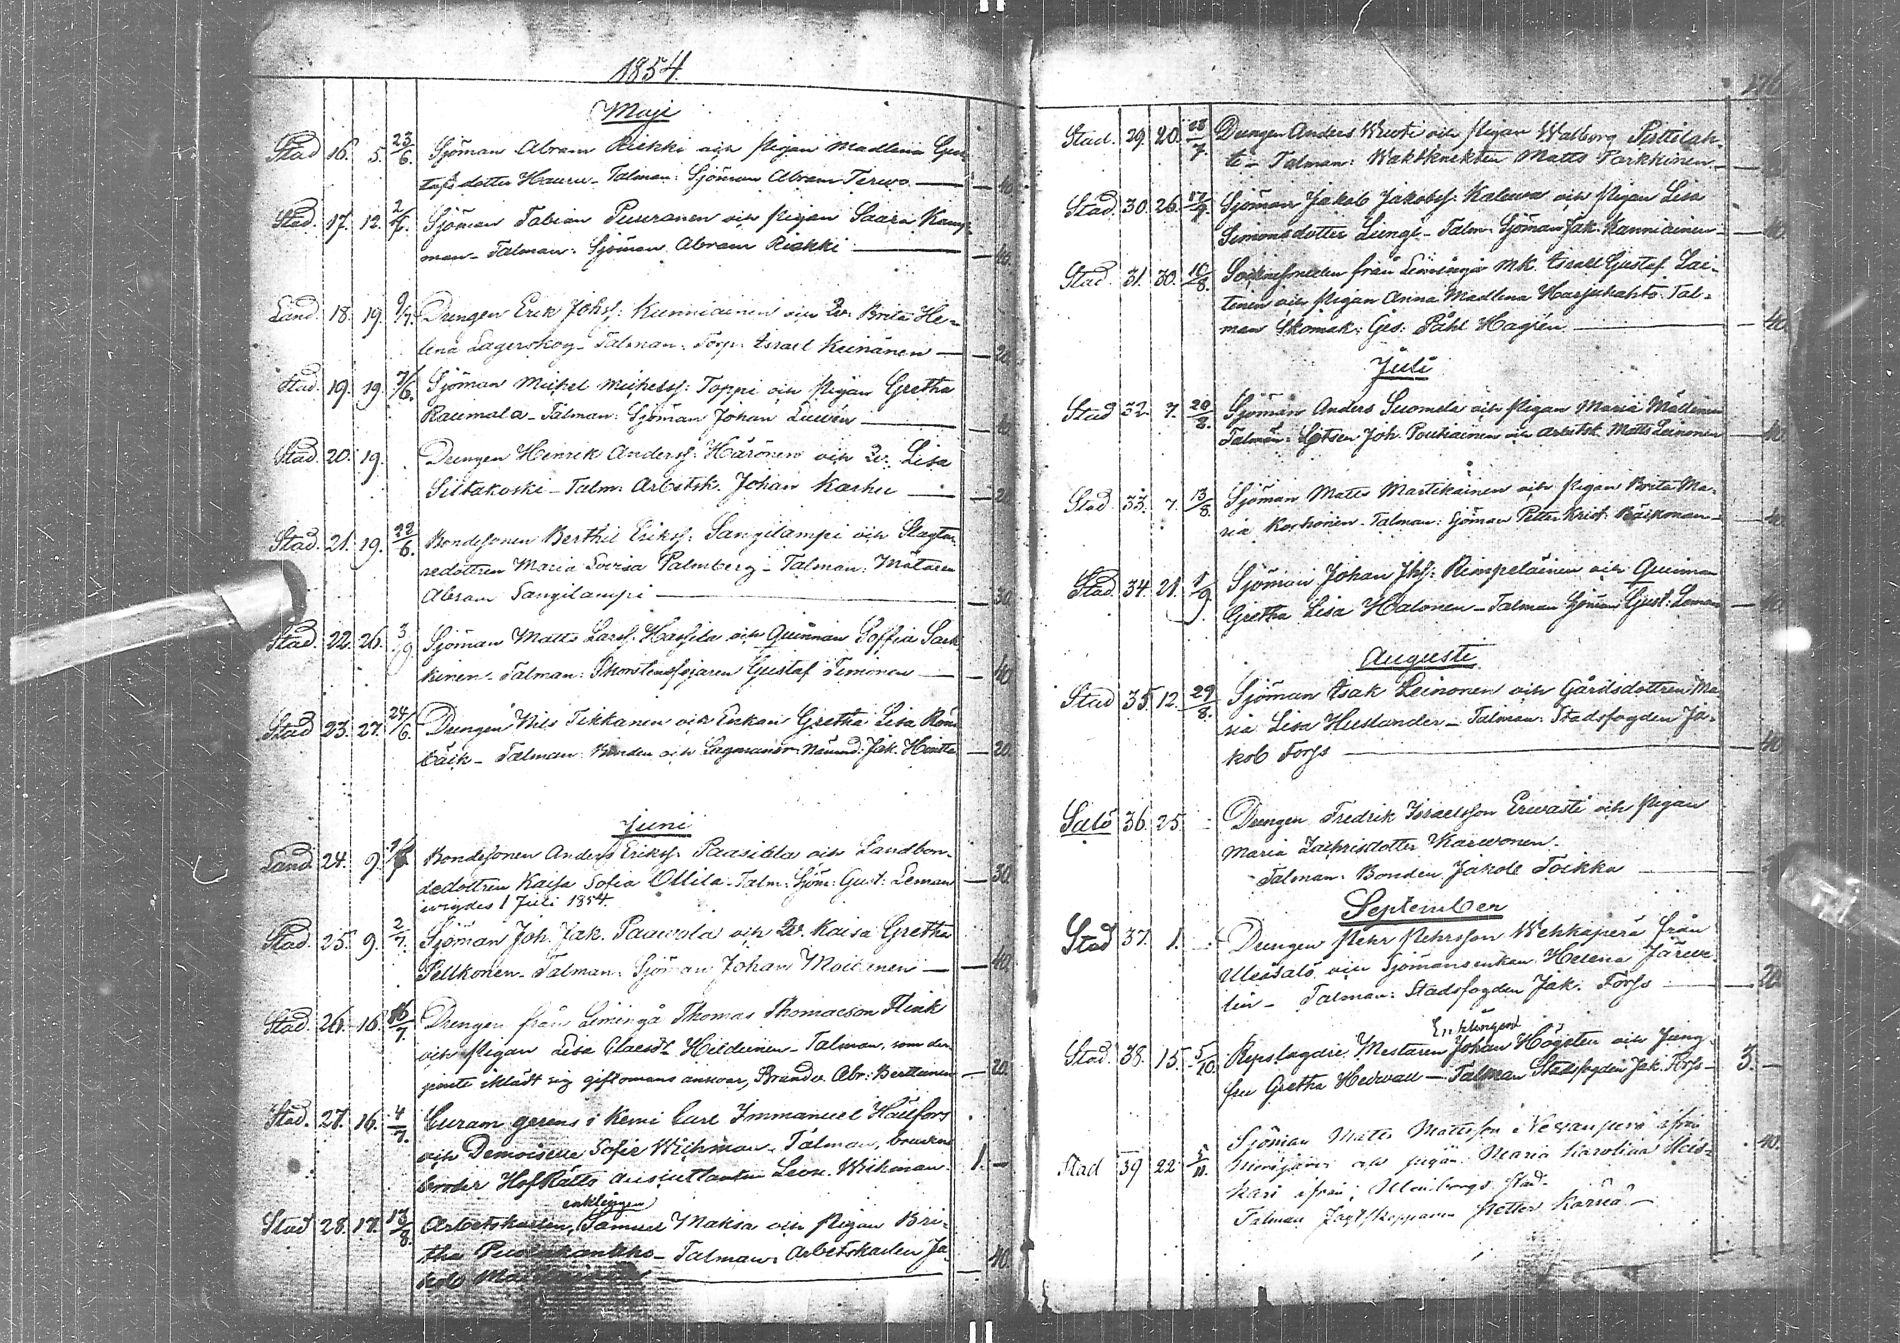 1854.
Maji
Stad 16. 5. 23/6. Sjöman Abram Riekki och Pigan Madlena Gus-
tafsdotter Hauru - Talman: Sjöman Abram Terwo — 40.
Stad. 17. 12. Sjöman Fabian Puuranen och Pigan Saara Kamp-
man - Talman: Sjöman Abram Riekki — 40.
Land. 18. 19. 9/7. Drengen Erik Johss: Kunniainen och Br. Brita He-
lena Lagerskog - Talman: Torp: Israel Keinänen — 20.
Stad. 19. 19. 7/6. Sjöman Mickel Mickelss: Toppi och Pigan Gretha
Raumala - Talman: Sjöman Johan — 40.
Stad. 20. 19. Drengen Henrik Anderss: Härönen och Lisa
Siltakoski - Talm: Arbetsk. Johan Karhu — 20.
Stad. 21. 19. 22/6. Bondesonen Berthil Erikss: Sangilampi och
Maria Lovisa Palmberg - Talman: Mätaren
Abram Sangilampi — 30.
Stad. 22. 26. 3/9 Sjöman Matts Larss: och Quinnan Soffia Sark-
kinen - Talman: Skorstensfejaren Gustaf Timonen — 40
Stad 23. 27. 24/6. Drengen Nils Tikkanen och Enkan Gretha Lisa Rönn-
bäck - Talman: Bonden och Lagmans Nämnd: Jak. Hintta — 20.
Juni
Land 24. 9. Bondesonen Anders Erikss: Paasikla och Landbon-
dedottren Kaisa Sofia Ollila. Talm: Sjöm: Gust: Leman — 30.
wigdes 1 Juli 1854.
Stad. 25. 9. 2/7. Sjöman Joh. Jak. Paawola och Kaisa Gretha
Pelkonen - Talman: Sjöman Johan Moilanen — 40.
Stad. 26. 16. 16/7. Drengen från Limingå Thomas Thomasson Flink
och Pigan Lisa Claesdr - Talman, som den-
iklädt sig giftomans answar, Abr: Berttanen — 20.
Stad. 27. 16. 4/7. Curam gerens i Kemi Carl Immanuel Hällfors
och Demoiselle Sofie Wichman. Talman, bruden
broder Hof Rätts Auscultanten Leon. Wichman. 1. —
enklingen
Stad 28. 17. 13/8. Arbetskarlen, Samuel Maksa och Pigan Bri-
tha - Talman: Arbetskarlen Ja-
kob — 40.
Stad. 29. 20. 23/7. Drengen Anders och Pigan Walborg Pistilah-
ti - Talman: Waktknekten Matts Parkkinen —
Stad. 30. 26. 17/9. Sjöman Jakob Jakobss: Kalawa och Pigan Lisa
Simonsdotter - Talm: Sjöman Jak. Kanniainen — 40.
Stad. 31. 30. 10/8. från Limingå Mk. Israel Gustaf Lai-
tinen och Pigan Anna Madlena Harjukahto. Tal-
man Skomak: Ges: Påhl Hagrén — 40.
Juli
Stad 32. 7. 20/8. Sjöman Anders Suomela och Pigan Maria Mällinen
Talman: Lotsen Joh. Poutiainen och Arbetsk. Matts Leinonen — 40.
Stad 33. 7. 13/8. Sjöman Matts Martikainen och Pigan Brita Ma-
ria Korhonen - Talman: Sjöman Petter Krist: — 40.
Stad. 34. 21. 1/9. Sjöman Johan Jhss: Rimpeläinen och Quinnan
Gretha Lisa Halonen - Talman Sjöman Gust: Leman — 40.
Augusti
Stad 35. 12. 29/8. Sjöman Isak Leinonen och Gårdsdottren Ma-
ria Lisa Huslander - Talman: Stadsfogden Ja-
kob Forss — 40.
Salo 36. 25. Drengen Fredrik Israelsson Erwasti och Pigan
Maria Zachrisdotter Karwonen.
Talman: Bonden Jakob Toikka —
September
Stad 37. 1. Drengen Pehr Pehrsson Wehkaperä från
Uleåsalo och Sjömansenkan Helena Järwe-
lin - Talman: Stadsfogden Jak. Forss — 20.
Enklingen
Stad. 38. 15. 5/10. Repslagare Mestaren Johan Högsten och Jung-
fru Gretha Hedwall — Talman Stadsfogden Jak. Forss — 3. —
Stad 39 22 Sjöman Matts Mattsson Newanperä ifrån
och pigan Maria Karolina 40.
kari ifrån Uleåborgs Stad.
Talman Petter Karna